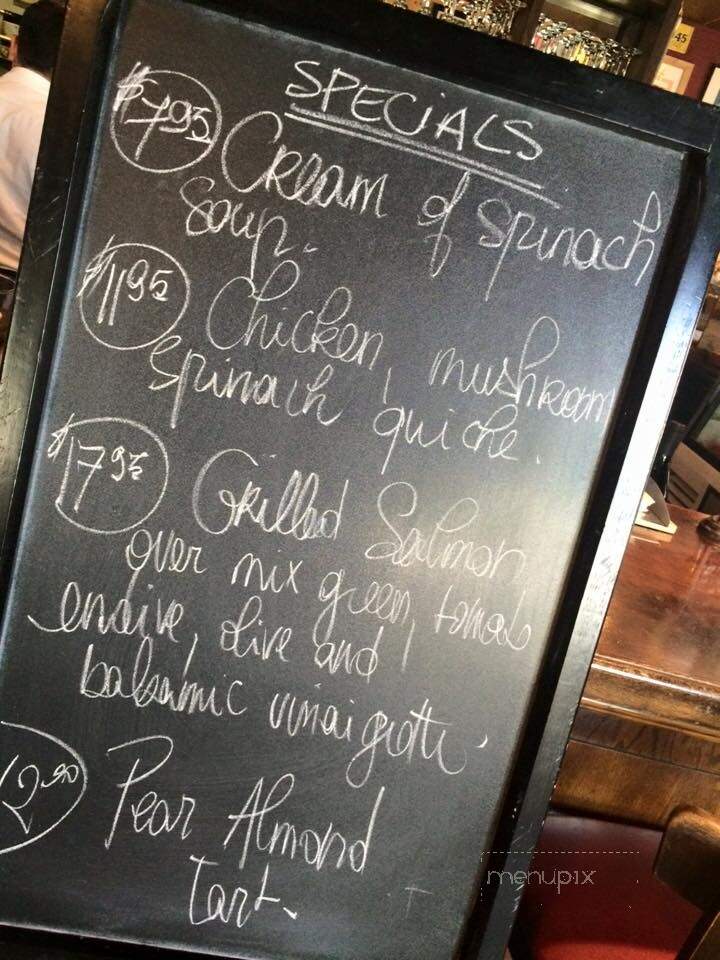 SPECIALS
$7.95 Cream of spinach
soup.
$11 95 Chicken, mushroom
spinach quiche.
$17 95 Grilled Salmon
over mix green, tomato
endive, olive and
balsamic vinaigrette.
12 90 Pear Almond
tart.
menupix
45